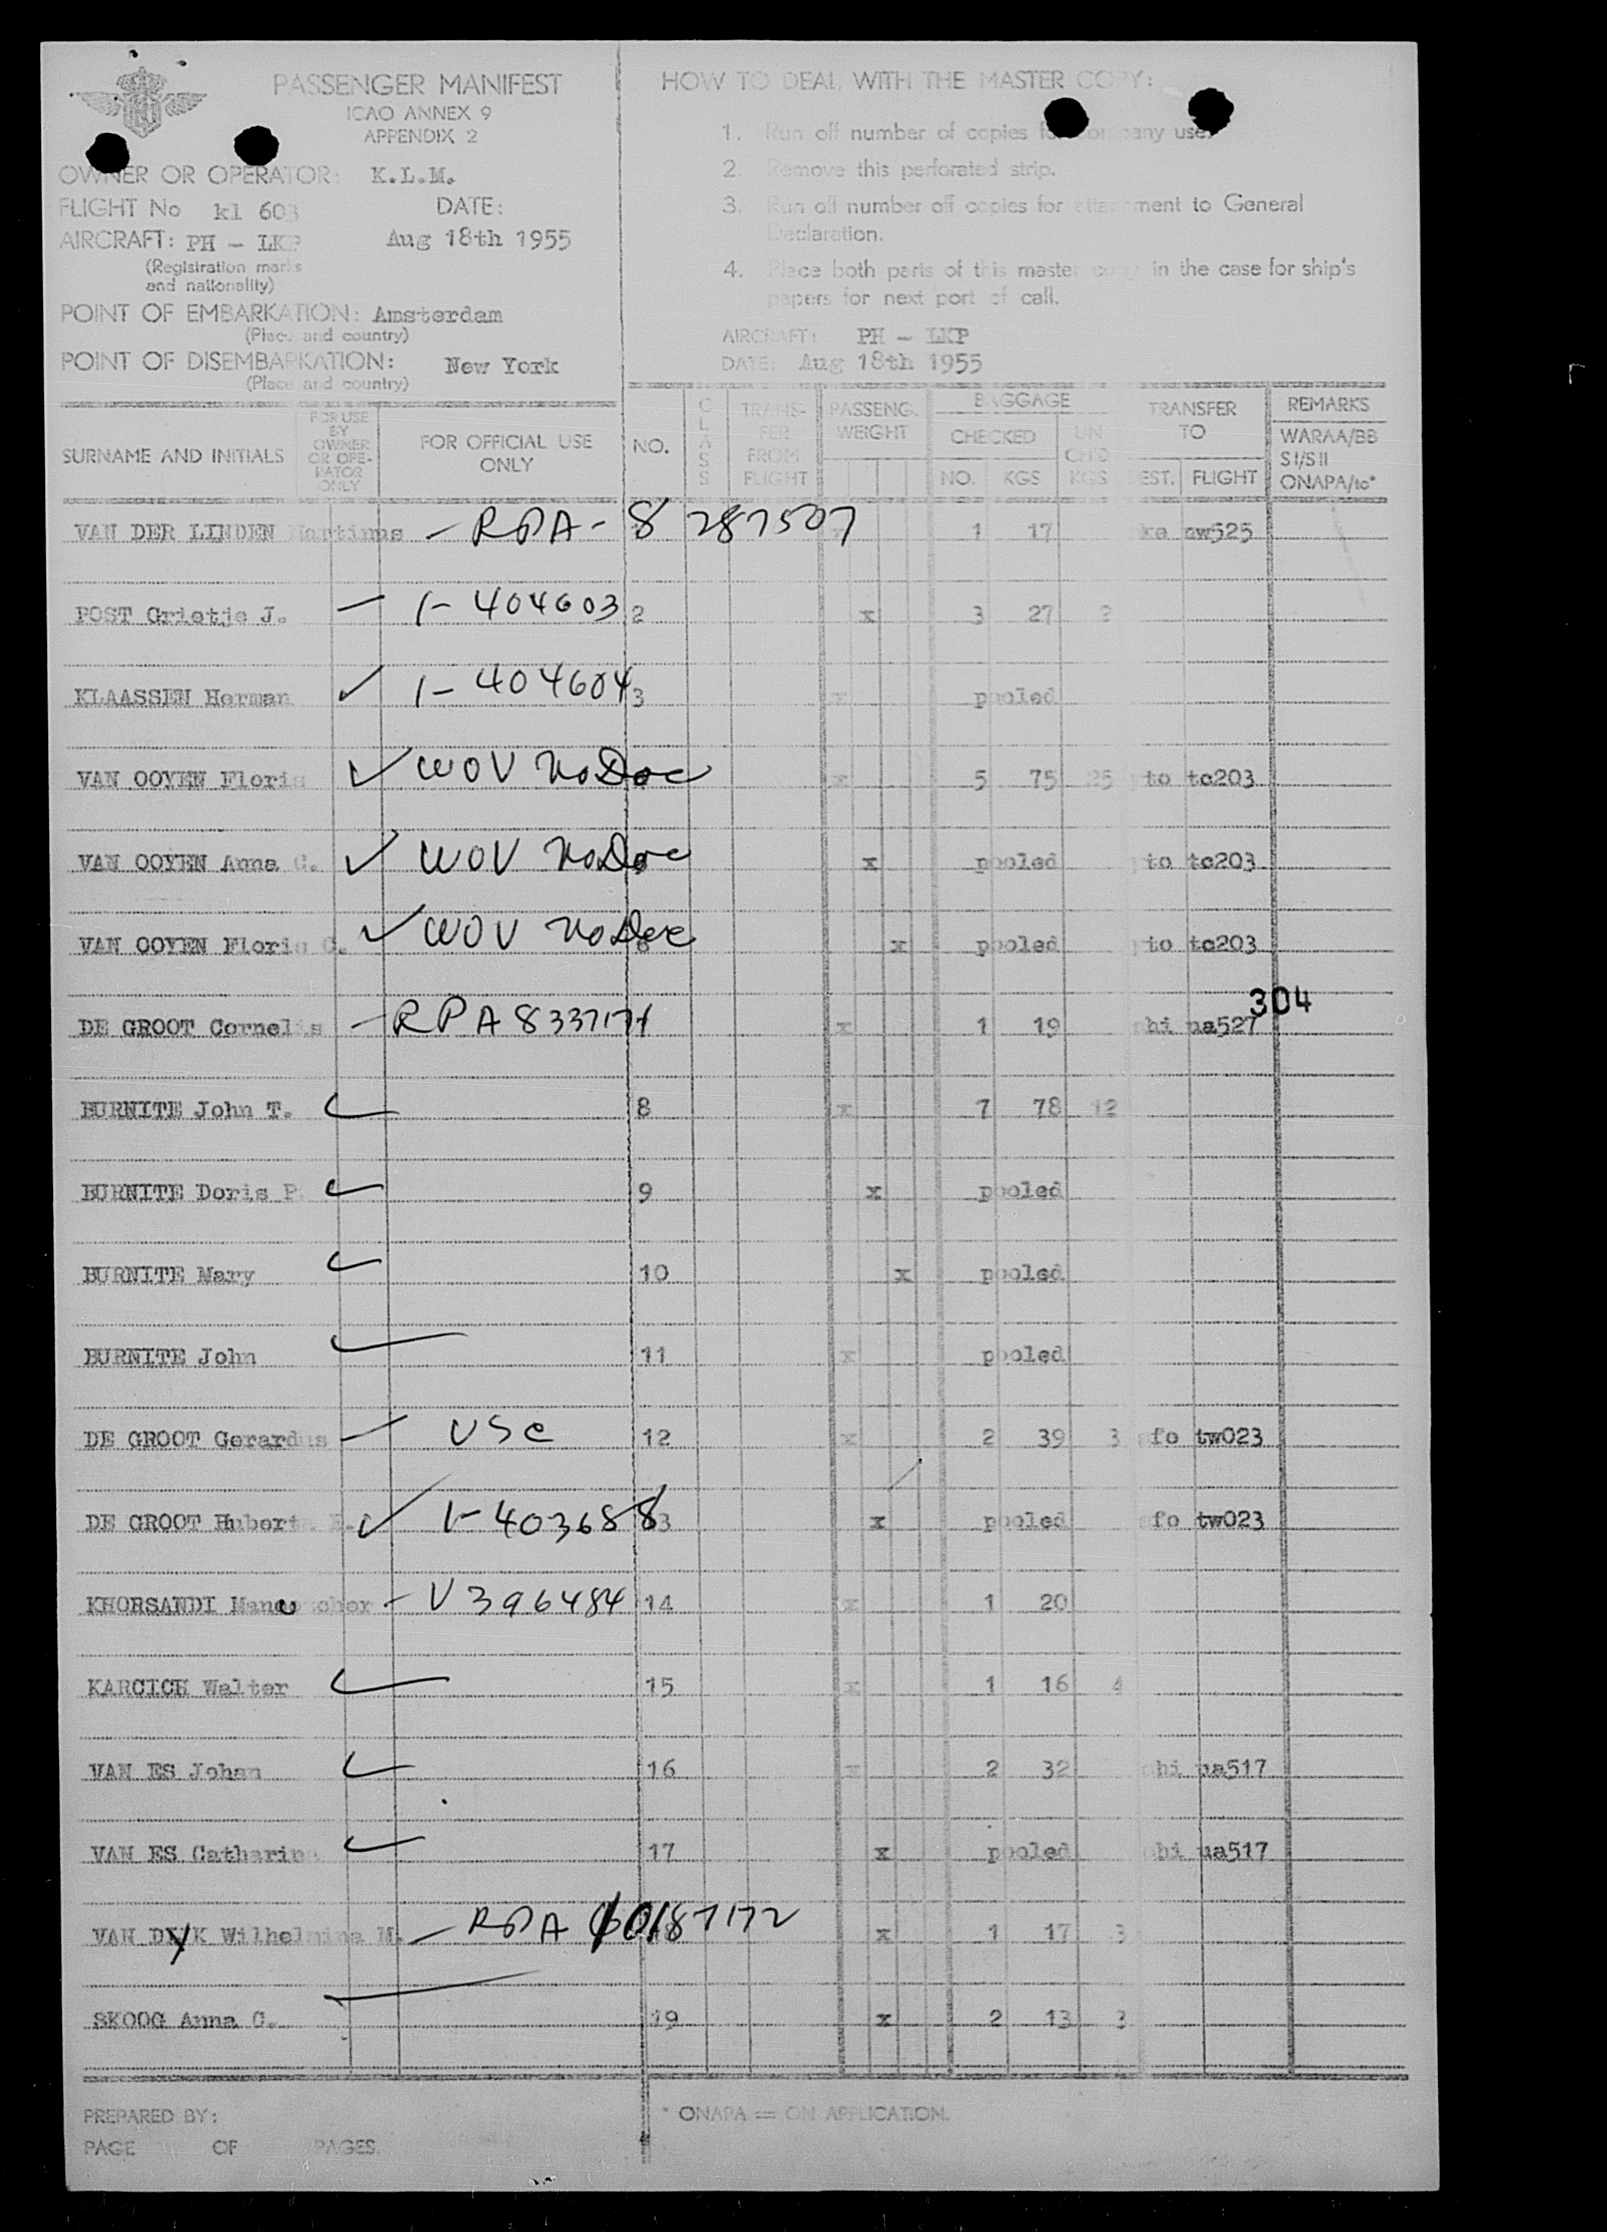 PASSENGER MANIFEST
ICAO ANNEX 9
APPENDIX 2
OWNER OR OPERATOR: K.L.M.
FLIGHT No kl 603 DATE:
AIRCRAFT: PH - LKP Aug 18th 1955
(Registration marks
and nationality)
POINT OF EMBARKATION: Amsterdam
(Place and country)
POINT OF DISEMBARKATION: New York
(Place and country)
HOW TO DEAL WITH THE MASTER COPY:
1. Run off number of copies for company use.
2. Remove this perforated strip.
3. Run off number off copies for attachment to General
Declaration.
4. Place both parts of this master copy in the case for ship's
papers for next port of call.
AIRCRAFT: PH - LKP
DATE: Aug 18th 1955
SURNAME AND INITIALS
FOR USE
BY
OWNER
OR OPE-
RATOR
ONLY
FOR OFFICIAL USE
ONLY
NO.
CLASS
TRANS-
FER
FROM
FLIGHT
PASSENG.
WEIGHT
BAGGAGE
CHECKED
NO. KGS
UN
CH'D
KGS
TRANSFER
TO
EST. FLIGHT
REMARKS
WARAA/BB
SI/SII
ONAPA/tc*
VAN DER LINDEN Martinus - RPA - 8 287507 1 17 ke nw525
POST Grietje J. 1- 404603 2 x 3 27
KLAASSEN Herman ✓ 1- 404604 3 x pooled
VAN OOYEN Floris ✓ WOV No Doc x 5 75 25 to tc203
VAN OOYEN Anna C. ✓ WOV No Doc x pooled to tc203
VAN OOYEN Floris C. ✓ WOV No Doc 6 x pooled to tc203
304
DE GROOT Cornelis - RPA 8337171 x 1 19 hi ua527
BURNITE John T. 8 x 7 78 12
BURNITE Doris P. 9 x pooled
BURNITE Mary 10 x pooled
BURNITE John 11 x pooled
DE GROOT Gerardus - USC 12 x 2 39 3 sfo tw023
DE GROOT Huberta ✓ 1- 403688 13 x pooled sfo tw023
KHORSANDI - V 396484 14 x 1 20
KARCICH Walter 15 x 1 16 4
VAN ES Johan 16 x 2 32 hi ua517
VAN ES Catharina 17 x pooled hi ua517
VAN DYK Wilhelmina M. - RPA x 1 17 3
SKOOG Anna C. 19 x 2 13 3
PREPARED BY:
PAGE OF PAGES.
* ONAPA = ON APPLICATION.